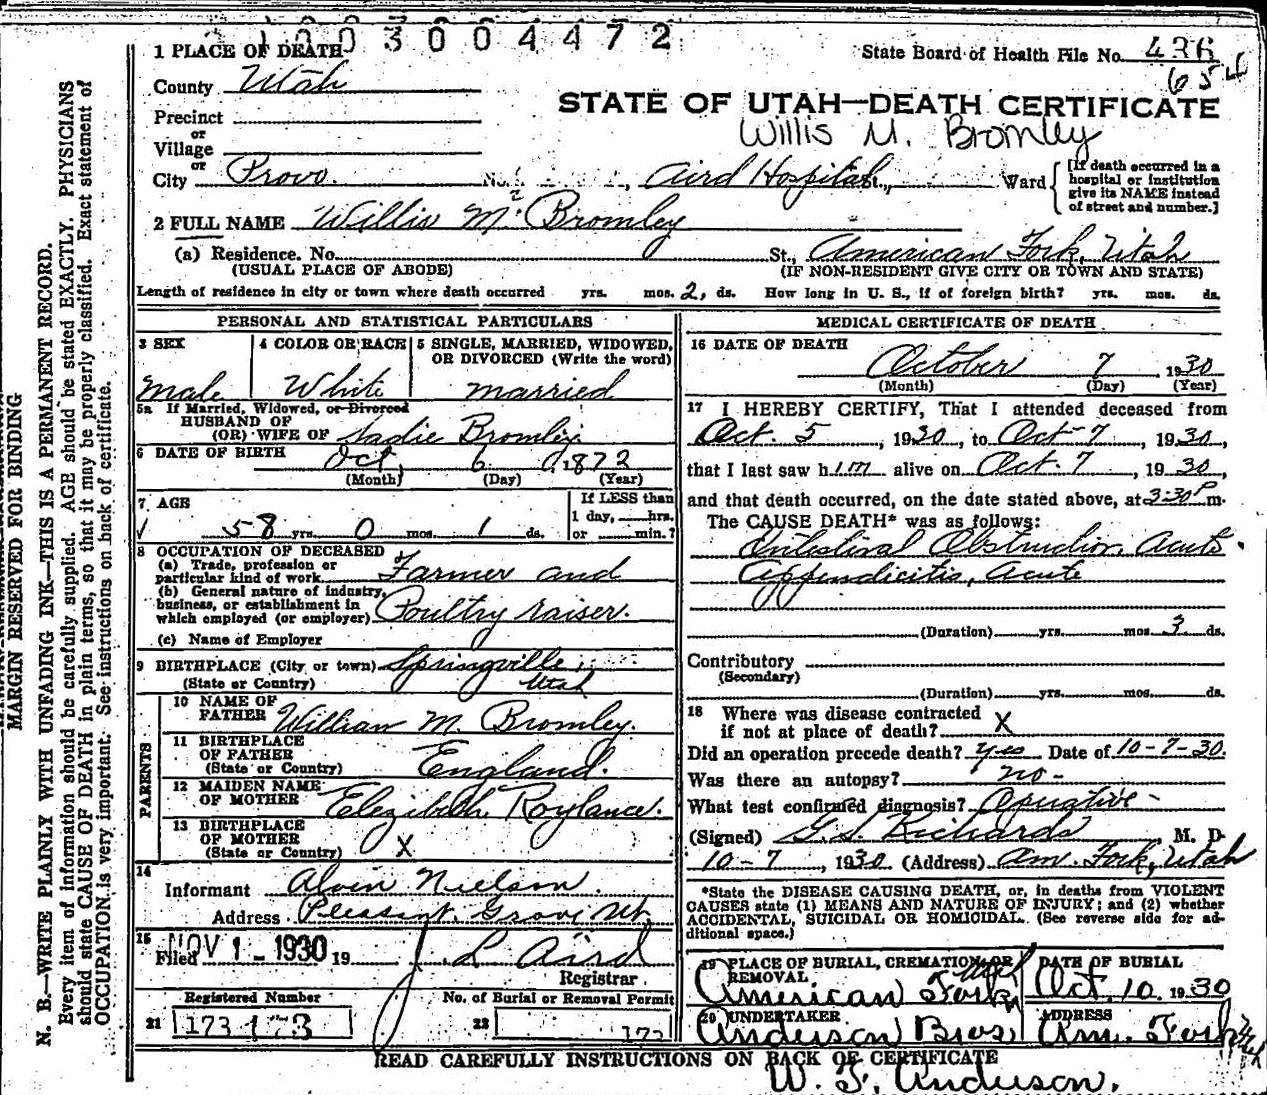 1003004472
1 PLACE OF DEATH
State Board of Health File No. 436
654
County Utah
STATE OF UTAH—DEATH CERTIFICATE
Precinct
or
Village
Willis M. Bromley
or
City Provo. No. , Aird Hospital St., Ward
[If death occurred in a
hospital or institution
give its NAME instead
of street and number.]
2 FULL NAME Willis M. Bromley
(a) Residence. No. St., American Fork, Utah
(USUAL PLACE OF ABODE) (IF NON-RESIDENT GIVE CITY OR TOWN AND STATE)
Length of residence in city or town where death occurred yrs. mos. 2, ds. How long in U. S., if of foreign birth? yrs. mos. ds.
PERSONAL AND STATISTICAL PARTICULARS
3 SEX 4 COLOR OR RACE 5 SINGLE, MARRIED, WIDOWED,
OR DIVORCED (Write the word)
Male White married
5a If Married, Widowed, or Divorced
HUSBAND OF
(OR) WIFE OF Sadie Bromley
6 DATE OF BIRTH Oct, 6, 1872
(Month) (Day) (Year)
7 AGE If LESS than
1 day, hrs.
58 yrs. 0 mos. 1 ds. or min.?
8 OCCUPATION OF DECEASED
(a) Trade, profession or
particular kind of work Farmer and
(b) General nature of industry,
business, or establishment in
which employed (or employer) Poultry raiser.
(c) Name of Employer
9 BIRTHPLACE (City or town) Springville
(State or Country) Utah
PARENTS
10 NAME OF
FATHER William M Bromley.
11 BIRTHPLACE
OF FATHER
(State or Country) England.
12 MAIDEN NAME
OF MOTHER Elizibeth Roylance.
13 BIRTHPLACE
OF MOTHER
(State or Country) X
14
Informant Alvin Nielson.
Address Pleasant Grove Ut.
15
Filed NOV 1 - 1930 19 J L Aird
Registrar
Registered Number No. of Burial or Removal Permit
21 173 173 22 173
MEDICAL CERTIFICATE OF DEATH
16 DATE OF DEATH
October 7 1930
(Month) (Day) (Year)
17 I HEREBY CERTIFY, That I attended deceased from
Oct. 5, 1930, to Oct 7, 1930,
that I last saw him alive on Oct. 7, 1930,
and that death occurred, on the date stated above, at 3:30 P m.
The CAUSE DEATH* was as follows:
Intestinal Obstruction Acute.
Appendicitis, Acute
(Duration) yrs. mos. 3 ds.
Contributory
(Secondary)
(Duration) yrs. mos. ds.
18 Where was disease contracted
if not at place of death? X
Did an operation precede death? yes Date of 10-7-30.
Was there an autopsy? no-
What test confirmed diagnosis? Operative-
(Signed) G. S. Richards, M. D
10-7, 1930 (Address) Am. Fork, Utah
*State the DISEASE CAUSING DEATH, or, in deaths from VIOLENT
CAUSES state (1) MEANS AND NATURE OF INJURY; and (2) whether
ACCIDENTAL, SUICIDAL OR HOMICIDAL. (See reverse side for ad-
ditional space.)
19 PLACE OF BURIAL, CREMATION OR
REMOVAL
American Fork Utah
DATE OF BURIAL
Oct. 10, 1930
20 UNDERTAKER
Anderson Bros
ADDRESS
Am. Fork Utah
READ CAREFULLY INSTRUCTIONS ON BACK OF CERTIFICATE
W. F. Anderson.
MARGIN RESERVED FOR BINDING
N. B.—WRITE PLAINLY WITH UNFADING INK—THIS IS A PERMANENT RECORD.
Every item of information should be carefully supplied. AGE should be stated EXACTLY. PHYSICIANS
should state CAUSE OF DEATH in plain terms, so that it may be properly classified. Exact statement of
OCCUPATION is very important. See instructions on back of certificate.